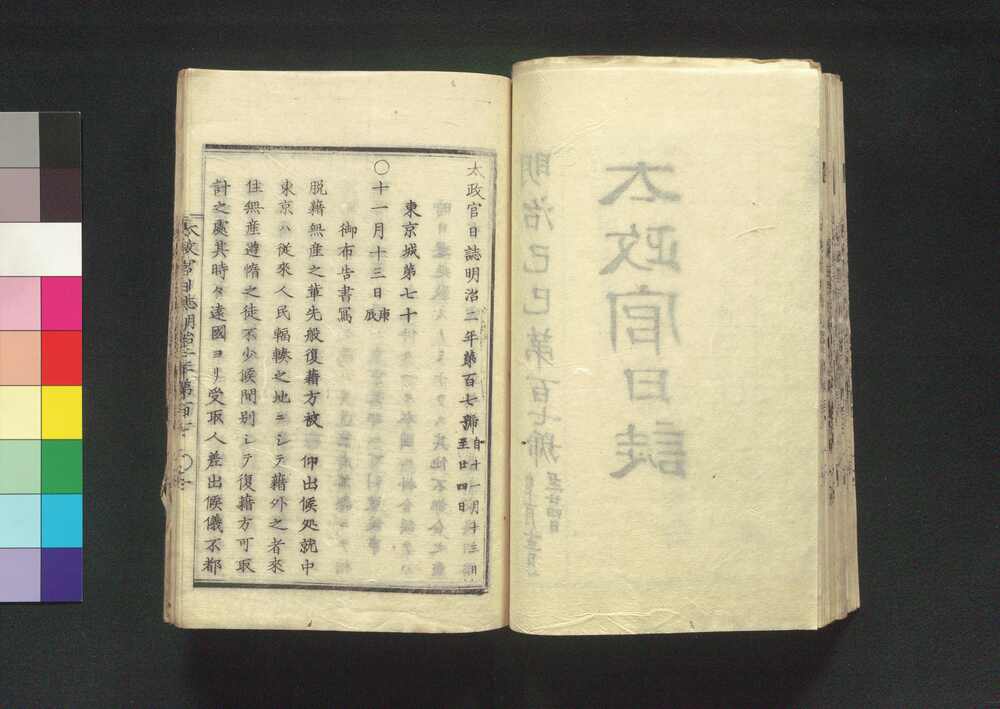 太政官日誌明治二年第百七號 自十一月十三日 至廿四日
東京城第七十
〇十一月十三日庚辰
御布告書寫
脱籍無産之輩先般復籍方被 仰出候処就中
東京ハ従來人民輻輳之地ニシテ籍外之者來
住無産遊惰之徒不少候間別シテ復籍方可取
計之處其時々遠國ヨリ受取人差出候儀不都
太政官日誌明治二年第百七 〇一
太政官日誌
明治己巳第百七號